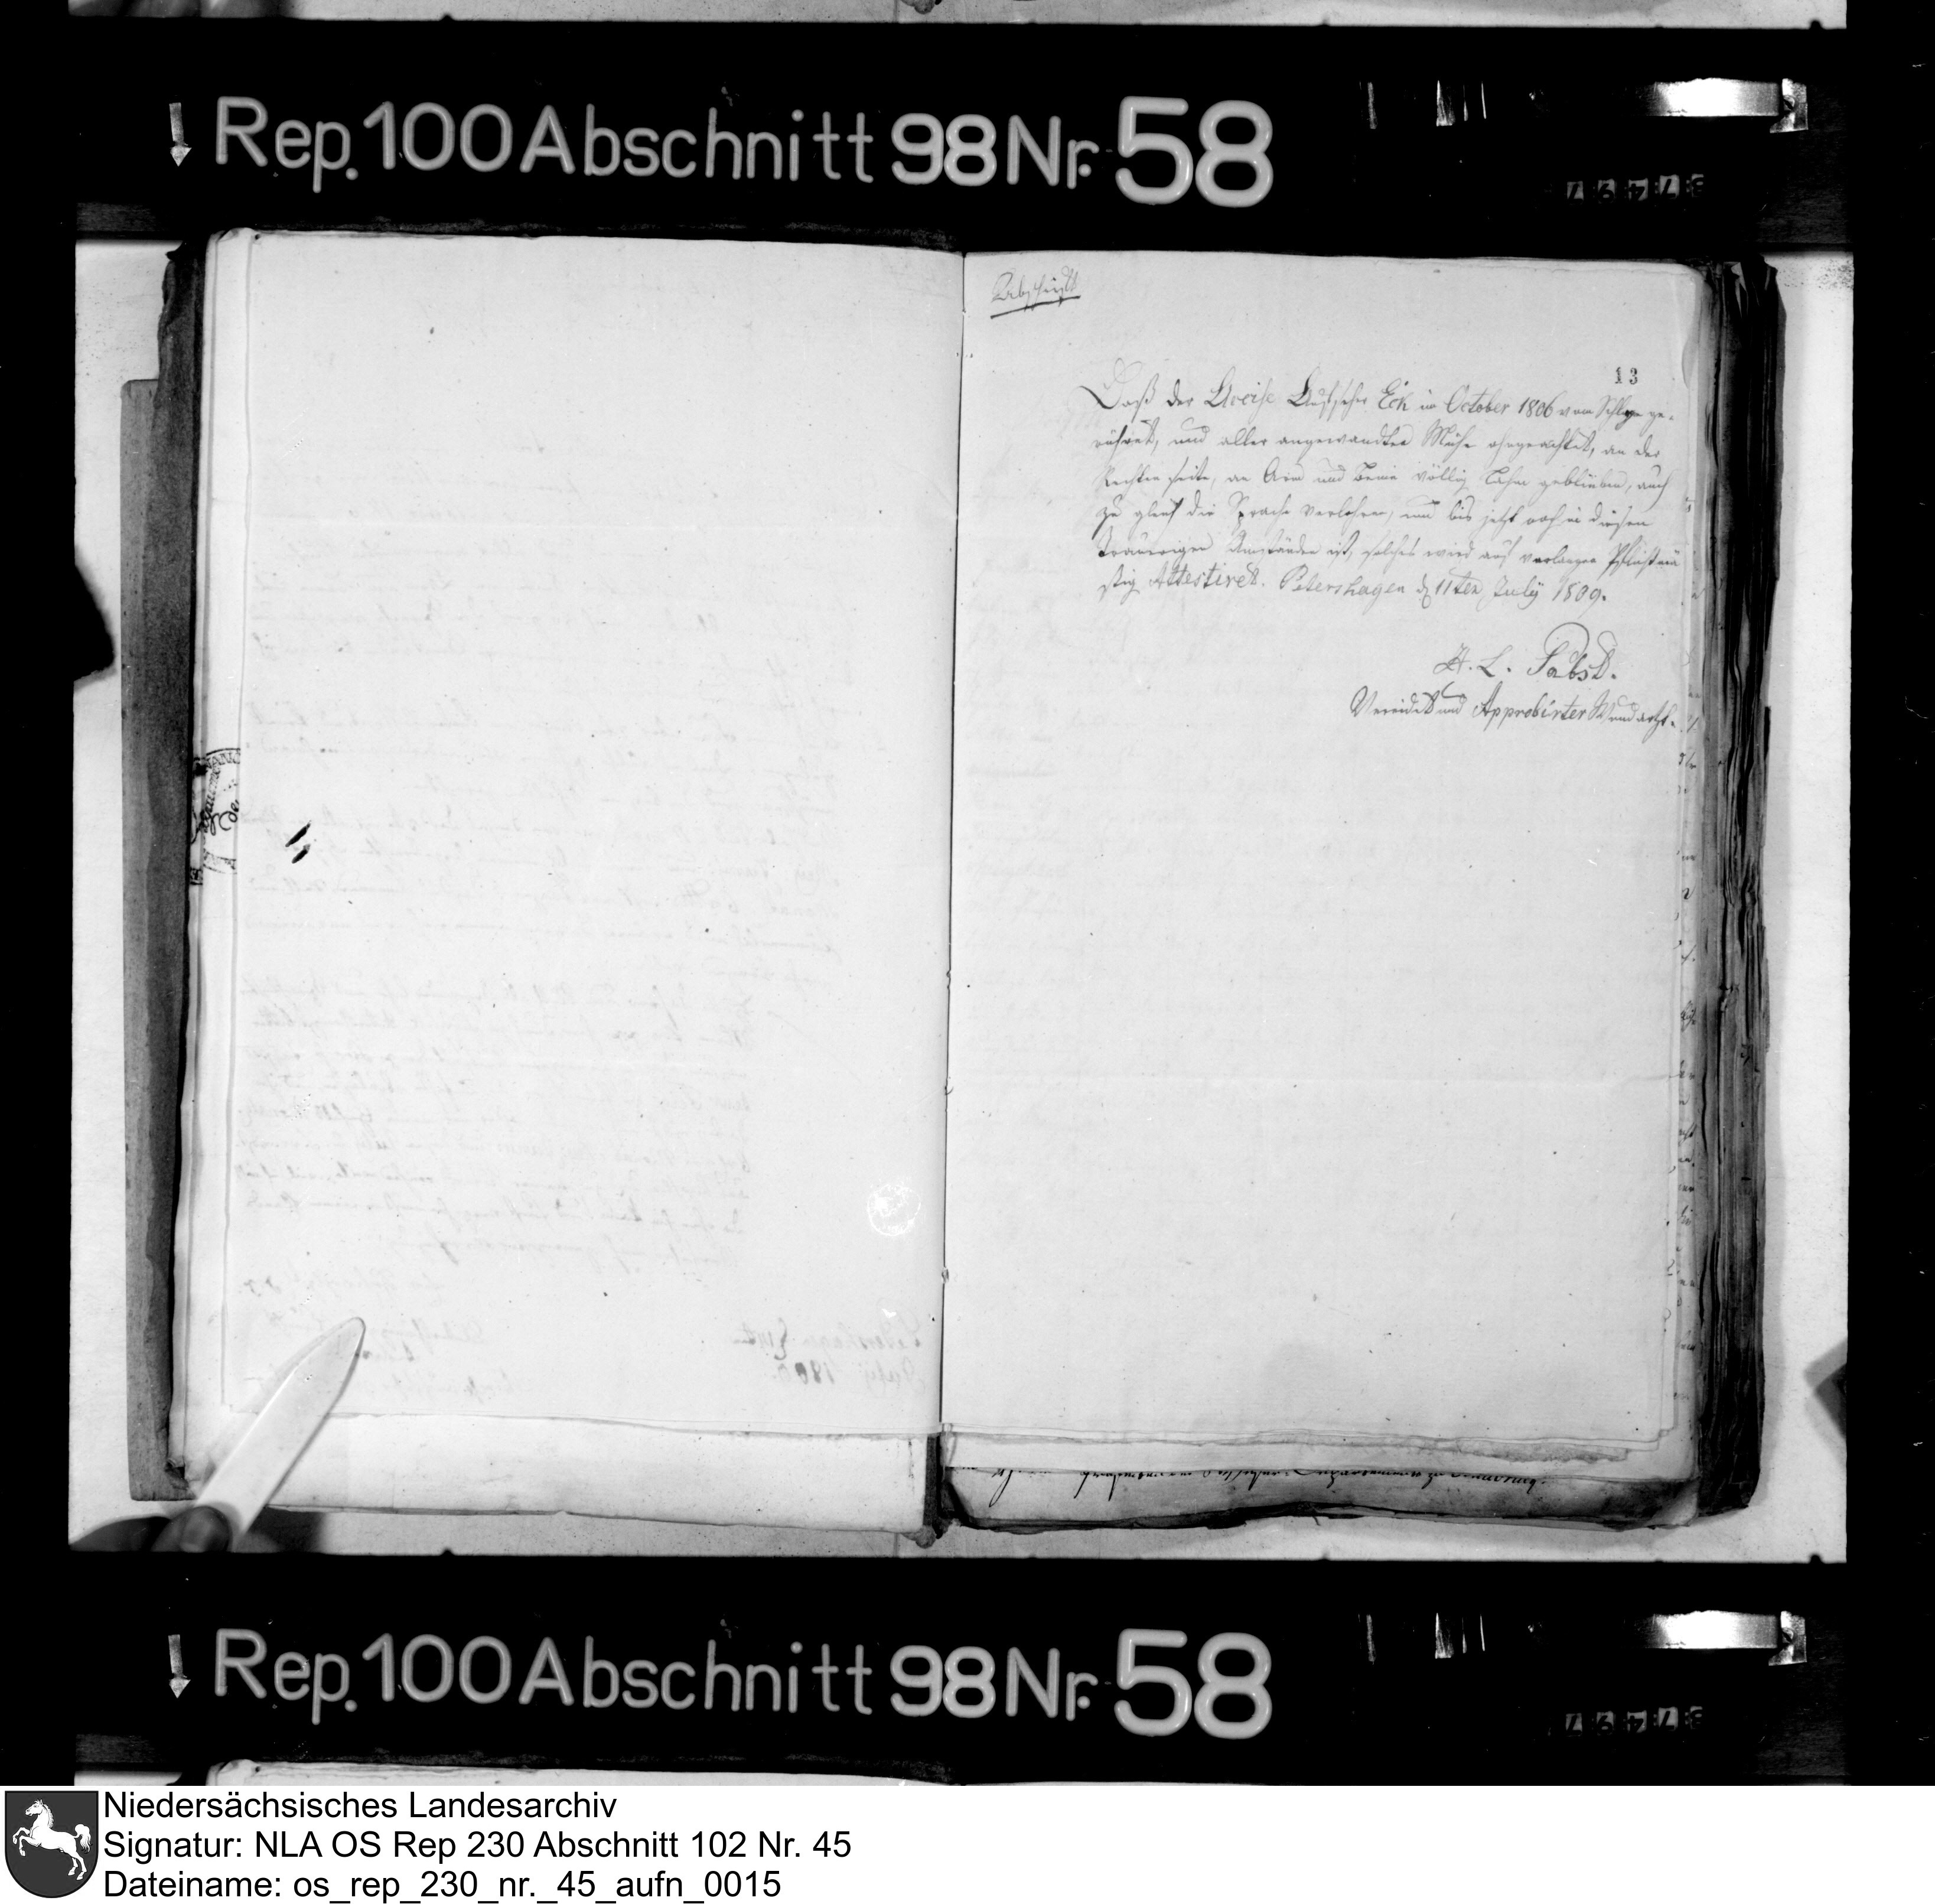 Rep. 100 Abschnitt 98 Nr. 58
Abschrift
13
Daß der Accise Aufseher Eck im October 1806 vom Schlage ge-
rühret, und aller angewandten Mühe ohngeachtet, an der
Rechten seite, an Arm und Beine völlig Lahm geblieben, auch
zu gleich die Sprache verlohren, und bis jetzt noch in diesen
Traurigen Umständen ist, solches wird auf verlangen Pflichtmä
ßig Attestiret. Petershagen d 11ten July 1809.
A. L. Pabst.
Vereidet und Approbirter Wundarzt.
Rep. 100 Abschnitt 98 Nr. 58
Niedersächsisches Landesarchiv
Signatur: NLA OS Rep 230 Abschnitt 102 Nr. 45
Dateiname: os_rep_230_nr._45_aufn_0015